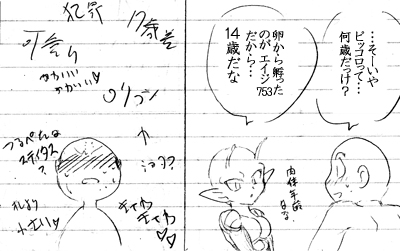 …そーいや
ピッコロって…
何歳だっけ?
卵から孵った
のがエイジ753
だから…
14歳だな
肉体年齢
はな
17歳差
犯罪
可愛い
かわいい
かわいい♡
ロリコン
つるぺたな
ステイタス
?
オレより
小さい♡
チャイ
チャイ
♡♡